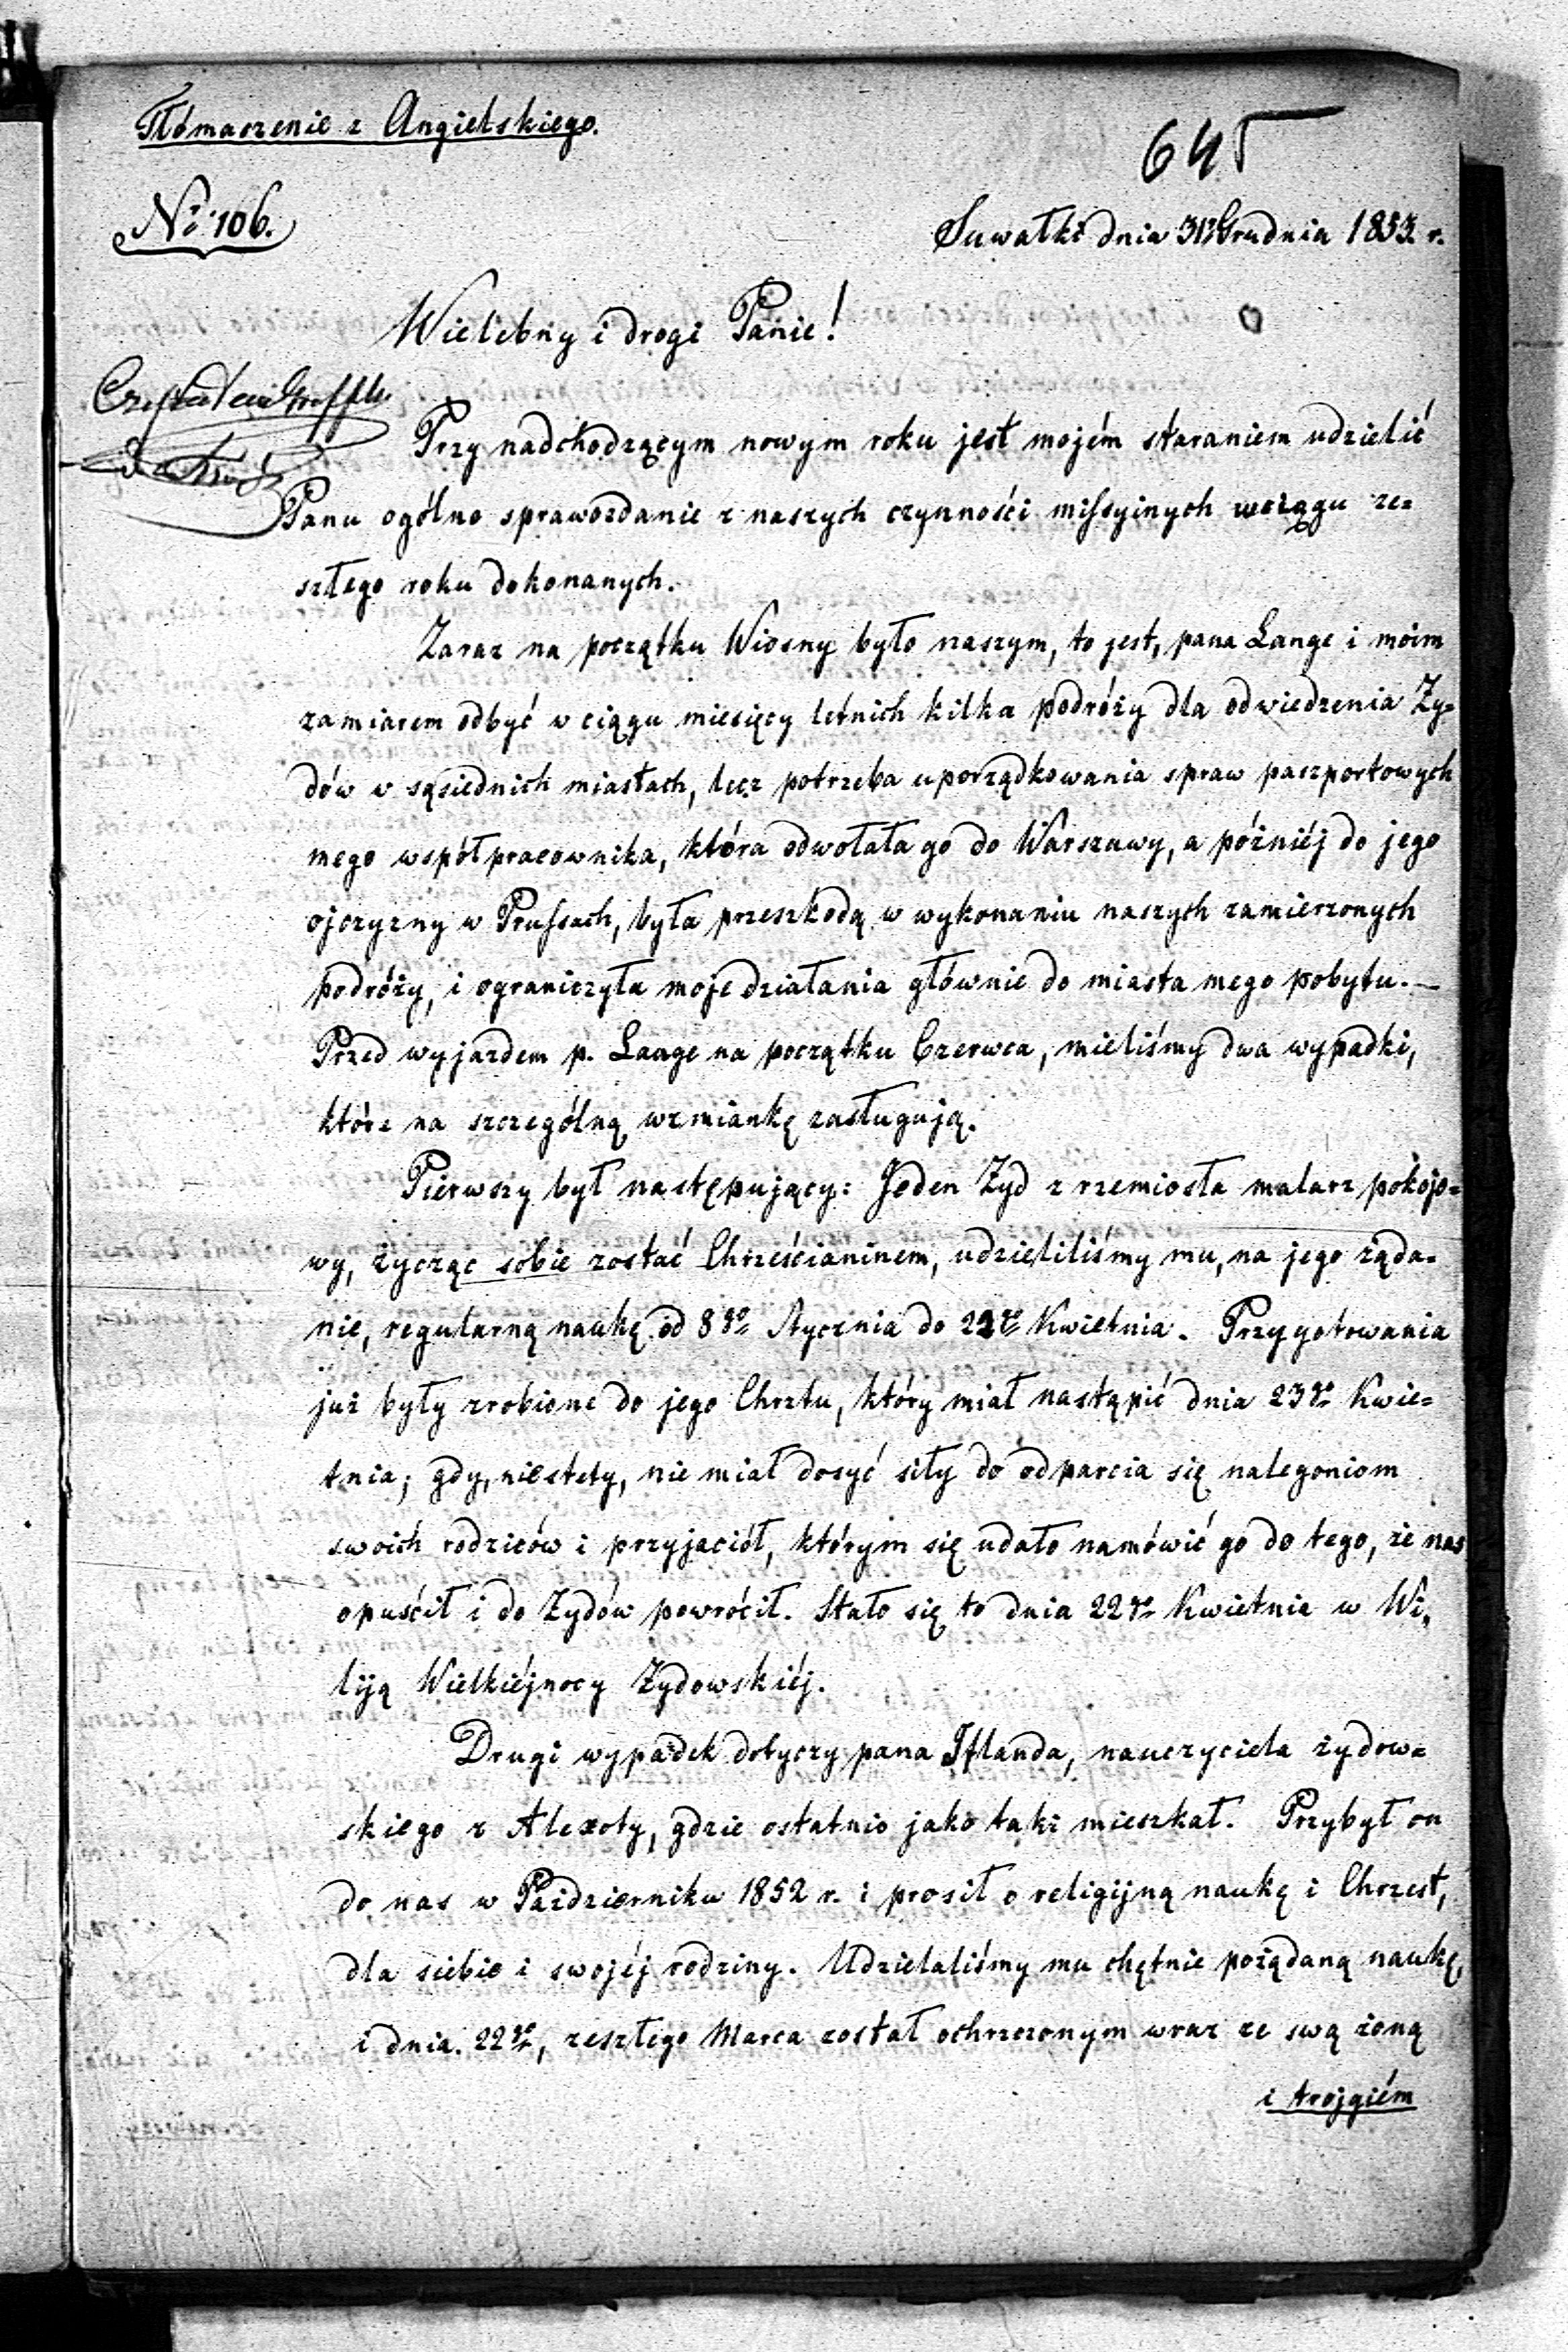 Tłómaczenie z Angielskiego.
645
No. 106.
Suwałki dnia 31 Grudnia 1853 r.
Wielebny i drogi Panie!
Przy nadchodzącym nowym roku jest mojém staraniem udzielić
Panu ogólne sprawozdanie z naszych czynności missyinych wciągu ze=
szłego roku dokonanych.
Zaraz na początku Wiosny było naszym, to jest, pana Lange i moim
zamiarem odbyć w ciągu miesięcy letnich kilka podróży dla odwiedzenia Ży=
dów w sąsiednich miastach, lecz potrzeba uporządkowania spraw paszportowych
mego współpracownika, która odwołała go do Warszawy, a późniéj do jego
ojczyzny w Prussach, była przeszkodą w wykonaniu naszych zamierzonych
podróży, i ograniczyła moje działania głównie do miasta mego pobytu. —
Przed wyjazdem p. Lange na początku Czerwca, mieliśmy dwa wypadki,
które na szczególną wzmiankę zasługują.
Pierwszy był następujący: Jeden Żyd z rzemiosła malarz pokojo=
wy, życząc sobie zostać Chrześcianinem, udzieliliśmy mu, na jego żąda=
nie, regularną naukę od 8go Stycznia do 22go Kwietnia. Przygotowania
już były zrobione do jego Chrztu, który miał nastąpić dnia 23go Kwie=
tnia; gdy, niestety, nie miał dosyć siły do odparcia się nalegoniom
swoich rodziców i przyjaciół, którym się udało namówić go do tego, że nas
opuścił i do Żydów powrócił. Stało się to dnia 22go Kwietnia w Wi=
liją Wielkiéjnocy Żydowskiéj.
Drugi wypadek dotyczy pana Iflanda, nauczyciela żydow=
skiego z Alexoty, gdzie ostatnio jako taki mieszkał. Przybył on
do nas w Październiku 1852 r. i prosił o religijną naukę i Chrzest,
dla siebie i swojéj rodziny. Udzielaliśmy mu chętnie pożądaną naukę,
i dnia. 22go, zeszłego Marca został ochrzczonym wraz ze swą żoną
i trojgiém